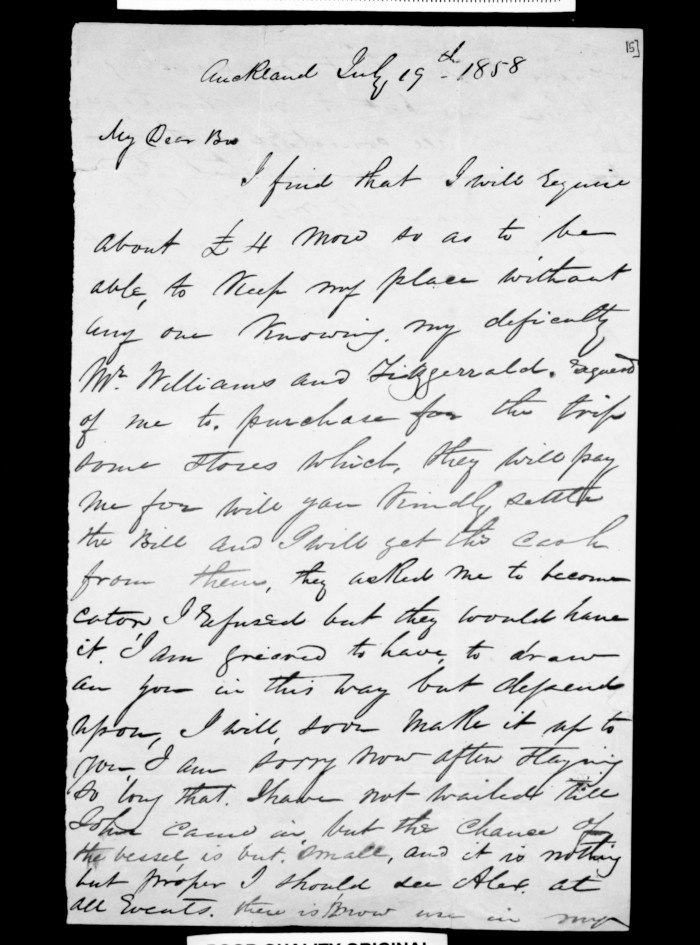 15]
Auckland July 19th 1858
My Dear Bro
I find that I will Require
about £ 4 More so as to be
able, to Keep my place without
any one Knowing. my deficulty
Mr. Williams and Fitzgerrald. Requered
of me to. purchase for the trip
some stores which, they will pay
me for will you Kindly settle
the Bill and I will get the cash
from them, they asked me to become
cator I Refused but they would have
it. I am greaved to have, to draw
on you in this way but depend
upon, I will, soon Make it up to
you I am sorry now after staying
so long that. I have not waited till
John came in but the chance of
the vessel, is but small, and it is nothing
but proper I should see Alex. at
all Events. there is know use in my
POOR QUALITY ORIGINAL